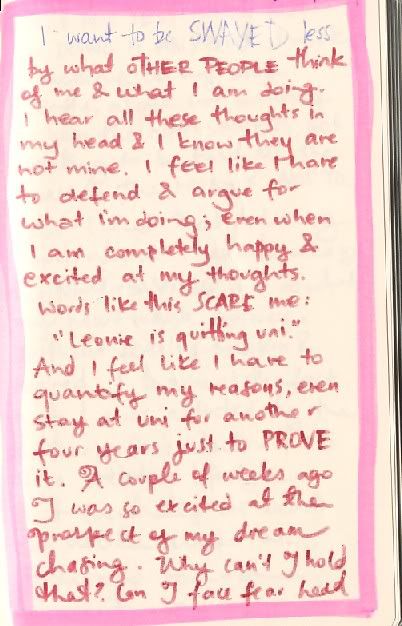 I want to be SWAYED less
by what OTHER PEOPLE think
of me & what I am doing.
I hear all these thoughts in
my head & I know they are
not mine. I feel like I have
to defend & argue for
what I'm doing; even when
I am completely happy &
excited at my thoughts.
Words like this SCARE me:
"Leonie is quitting uni."
And I feel like I have to
quantify my reasons, even
stay at uni for another
four years just to PROVE
it. A couple of weeks ago
I was so excited at the
prospect of my dream
chasing. Why can't I hold
that? Can I face fear head